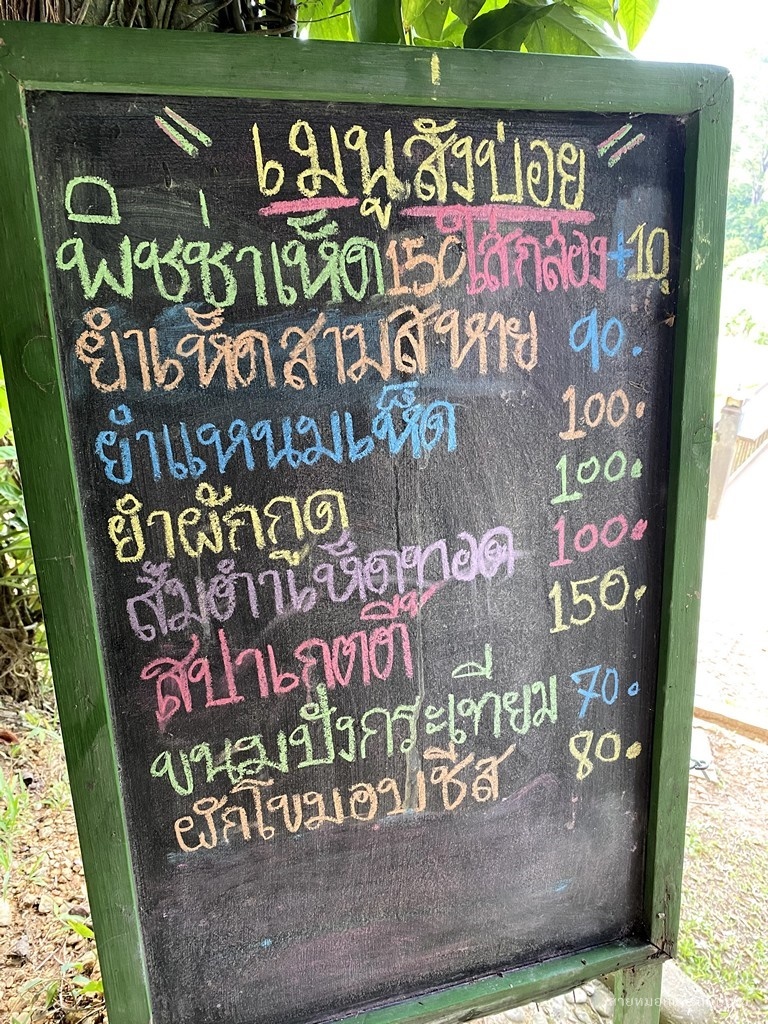 เมนูสั่งบ่อย
พิชซ่าเห็ด 150 ใส่กล่อง +10
ยำเห็ดสามสหาย 90.
ยำแหนมเห็ด 100.
ยำผักกูด 100.
ส้มตำเห็ดทอด 100.
สปาเกตตี้ 150.
ขนมปังกระเทียม 70.
ผักโขมอบชีส 80.